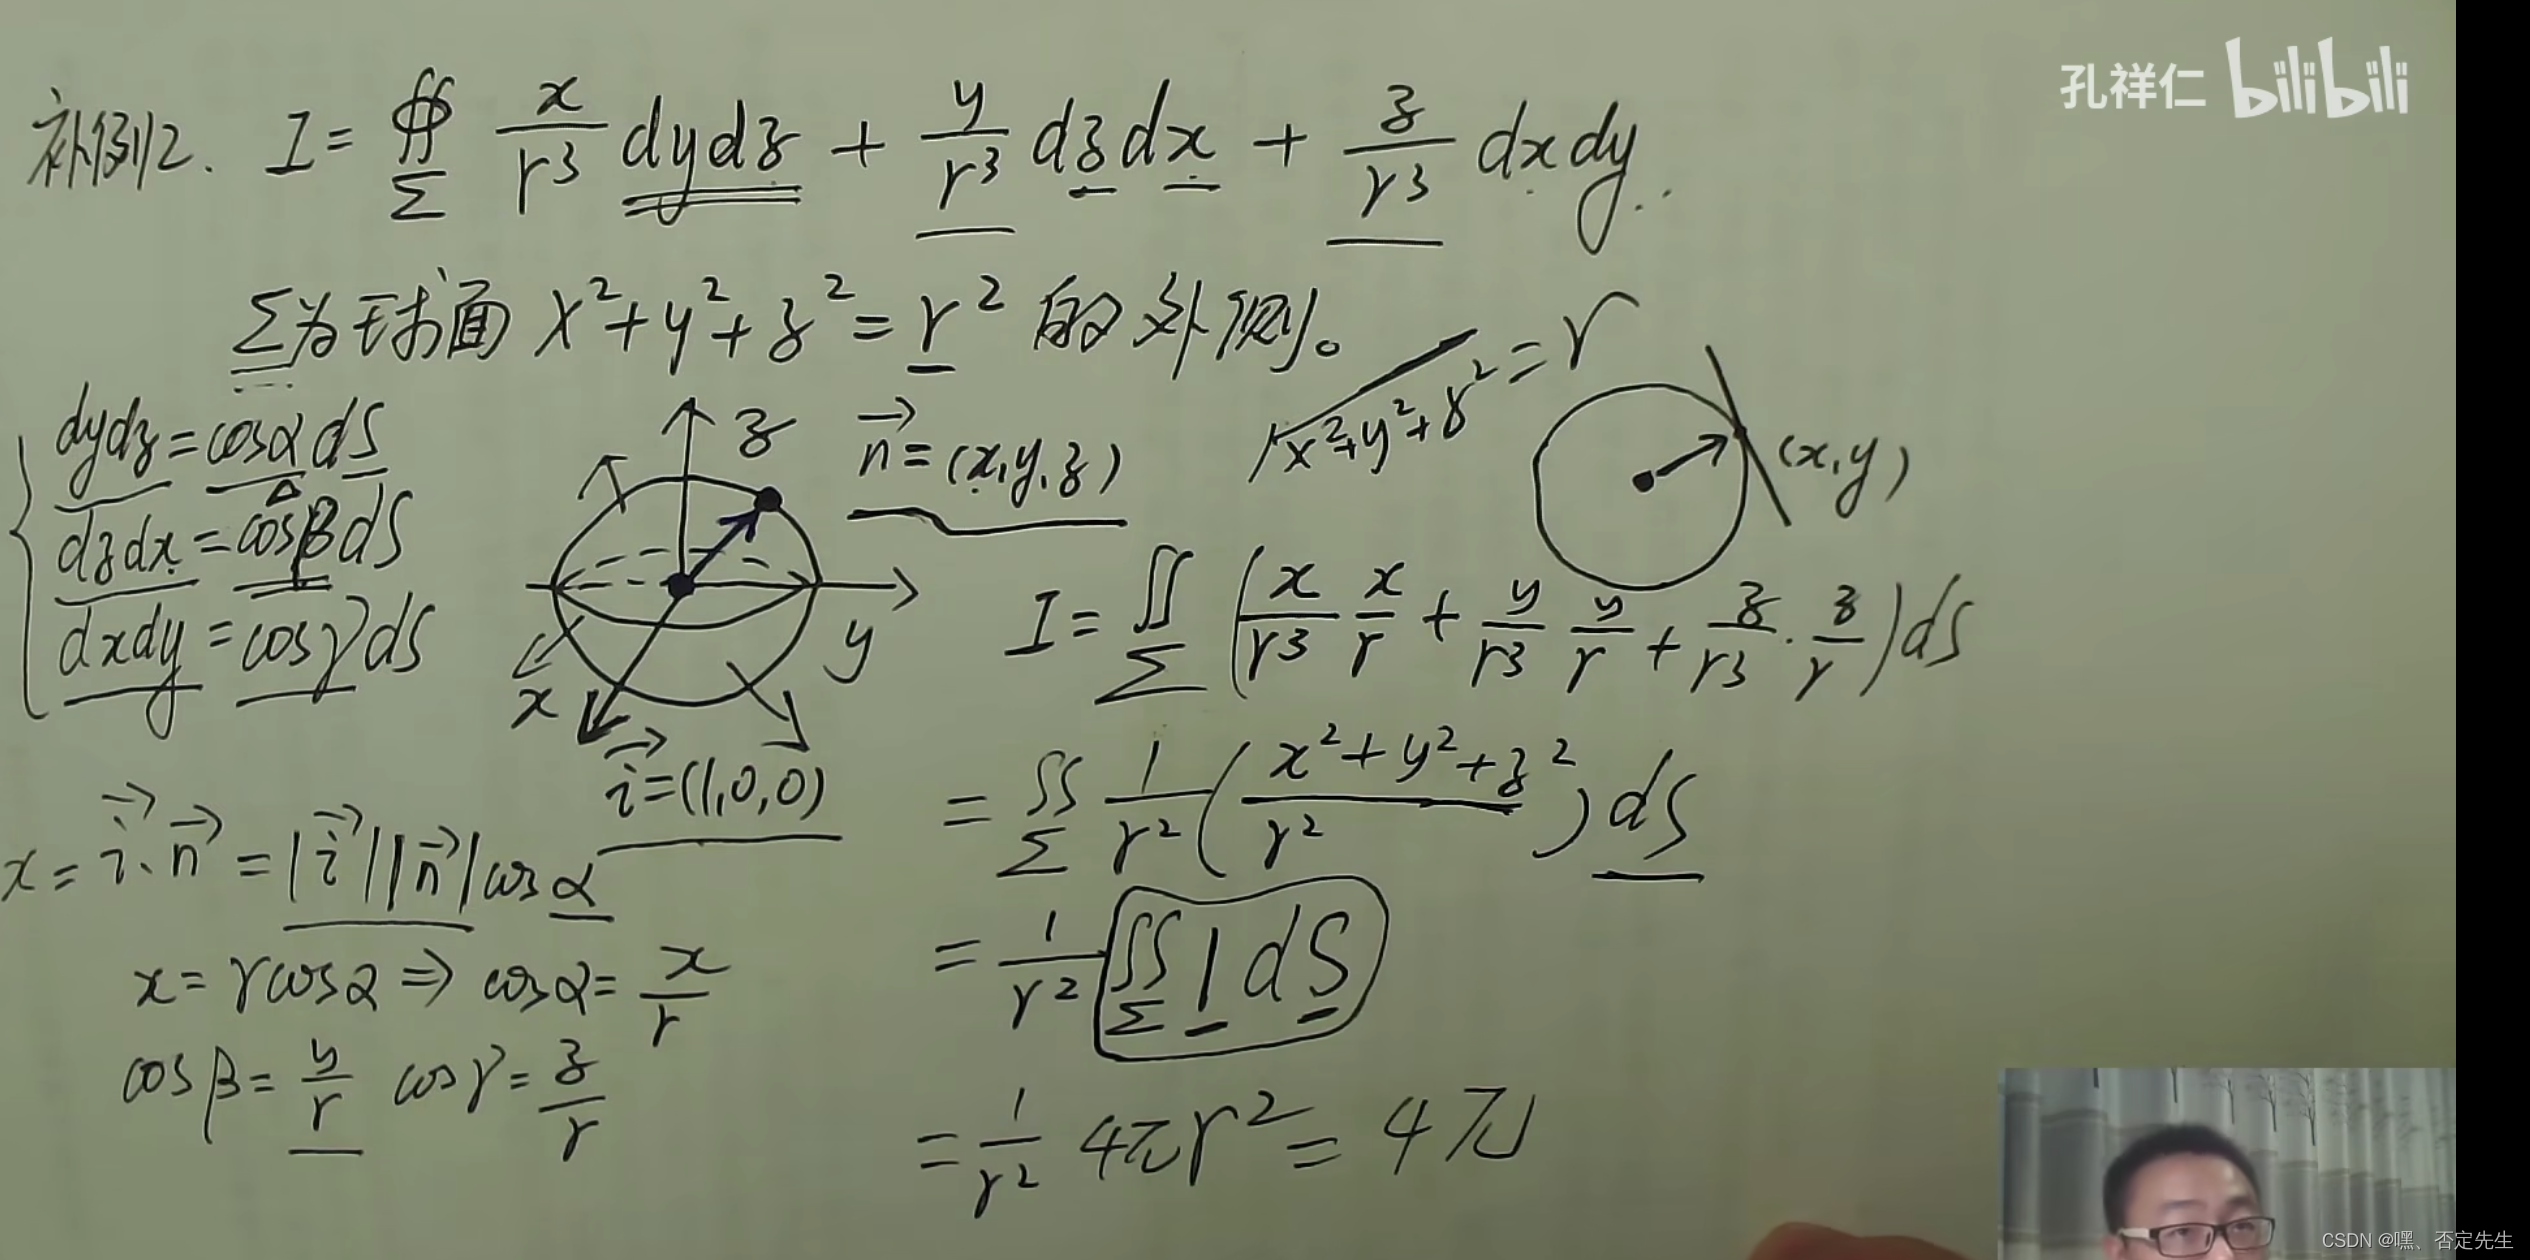 孔祥仁 bilibili
补例2. I = ∯_Σ x/r³ dydz + y/r³ dzdx + z/r³ dxdy.
Σ为球面 x²+y²+z² = r² 的外侧。
√x²+y²+z² = r
dydz = cosα dS
dzdx = cosβ dS
dxdy = cosγ dS
z
y
x
n⃗ = (x,y,z)
(x,y)
i⃗ = (1,0,0)
x = i⃗·n⃗ = |i⃗||n⃗|cosα
x = rcosα ⇒ cosα = x/r
cosβ = y/r cosγ = z/r
I = ∬_Σ (x/r³ x/r + y/r³ y/r + z/r³ · z/r) dS
= ∬_Σ 1/r² ((x²+y²+z²)/r²) dS
= 1/r² ∬_Σ 1 dS
= 1/r² 4πr² = 4π
CSDN @嘿、否定先生